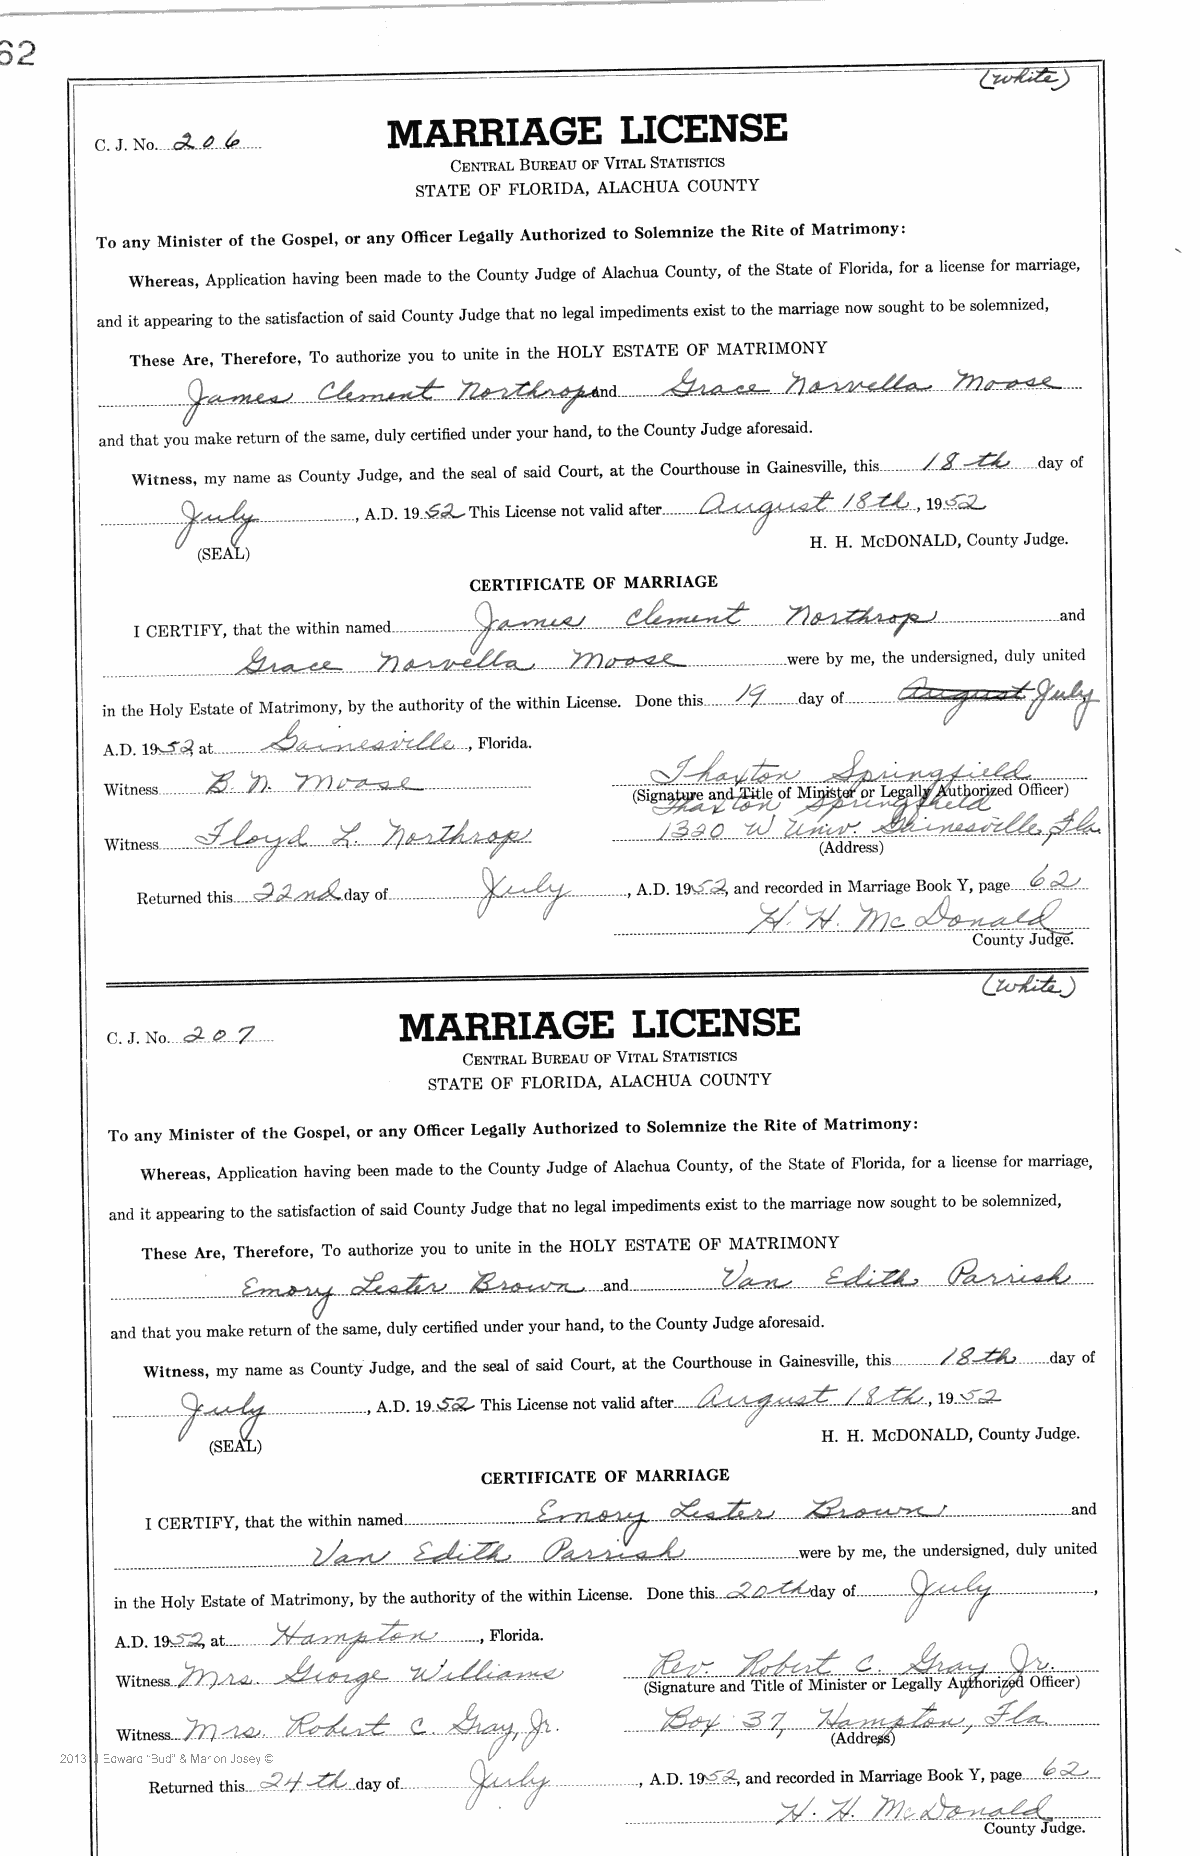 62
(White)
C. J. No. 206
MARRIAGE LICENSE
CENTRAL BUREAU OF VITAL STATISTICS
STATE OF FLORIDA, ALACHUA COUNTY
To any Minister of the Gospel, or any Officer Legally Authorized to Solemnize the Rite of Matrimony:
Whereas, Application having been made to the County Judge of Alachua County, of the State of Florida, for a license for marriage,
and it appearing to the satisfaction of said County Judge that no legal impediments exist to the marriage now sought to be solemnized,
These Are, Therefore, To authorize you to unite in the HOLY ESTATE OF MATRIMONY
James Clement Northrop and Grace Norvella Moose
and that you make return of the same, duly certified under your hand, to the County Judge aforesaid.
Witness, my name as County Judge, and the seal of said Court, at the Courthouse in Gainesville, this 18th day of
July, A.D. 1952 This License not valid after August 18th, 1952
(SEAL) H. H. McDONALD, County Judge.
CERTIFICATE OF MARRIAGE
I CERTIFY, that the within named James Clement Northrop and
Grace Norvella Moose were by me, the undersigned, duly united
in the Holy Estate of Matrimony, by the authority of the within License. Done this 19 day of August July
A.D. 1952, at Gainesville, Florida.
Witness B. N. Moose Thaxton Springfield
(Signature and Title of Minister or Legally Authorized Officer)
Thaxton Springfield
Witness Floyd L. Northrop 1320 W Univ. Gainesville, Fla.
(Address)
Returned this 22nd day of July, A.D. 1952, and recorded in Marriage Book Y, page 62
H. H. McDonald
County Judge.
(White)
C. J. No. 207
MARRIAGE LICENSE
CENTRAL BUREAU OF VITAL STATISTICS
STATE OF FLORIDA, ALACHUA COUNTY
To any Minister of the Gospel, or any Officer Legally Authorized to Solemnize the Rite of Matrimony:
Whereas, Application having been made to the County Judge of Alachua County, of the State of Florida, for a license for marriage,
and it appearing to the satisfaction of said County Judge that no legal impediments exist to the marriage now sought to be solemnized,
These Are, Therefore, To authorize you to unite in the HOLY ESTATE OF MATRIMONY
Emory Lester Brown and Van Edith Parrish
and that you make return of the same, duly certified under your hand, to the County Judge aforesaid.
Witness, my name as County Judge, and the seal of said Court, at the Courthouse in Gainesville, this 18th day of
July, A.D. 1952 This License not valid after August 18th, 1952
(SEAL) H. H. McDONALD, County Judge.
CERTIFICATE OF MARRIAGE
I CERTIFY, that the within named Emory Lester Brown and
Van Edith Parrish were by me, the undersigned, duly united
in the Holy Estate of Matrimony, by the authority of the within License. Done this 20th day of July,
A.D. 1952, at Hampton, Florida.
Witness Mrs. George Williams Rev. Robert C. Gray Jr.
(Signature and Title of Minister or Legally Authorized Officer)
Witness Mrs. Robert C. Gray, Jr. Box 37, Hampton, Fla.
(Address)
2013 J Edward "Bud" & Marion Josey ©
Returned this 24th day of July, A.D. 1952, and recorded in Marriage Book Y, page 62
H. H. McDonald
County Judge.